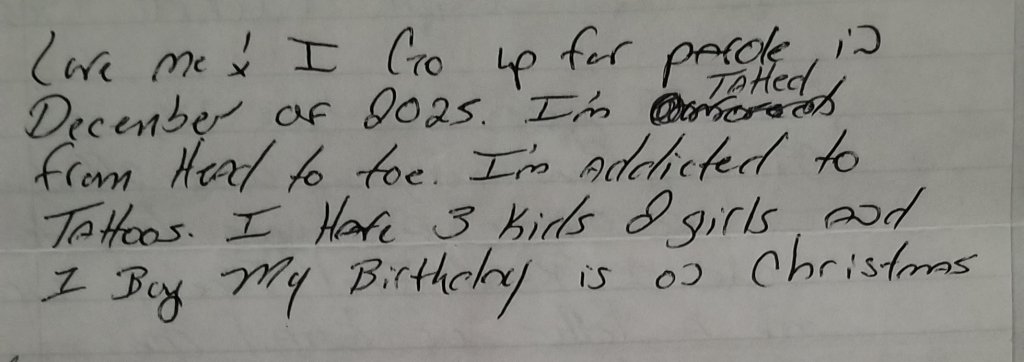 Love me & I Go up for parole in
December of 2025. I'm Tatted
from Head to toe. I'm Addicted to
Tattoos. I Have 3 Kids 2 girls and
1 Boy My Birthday is on Christmas